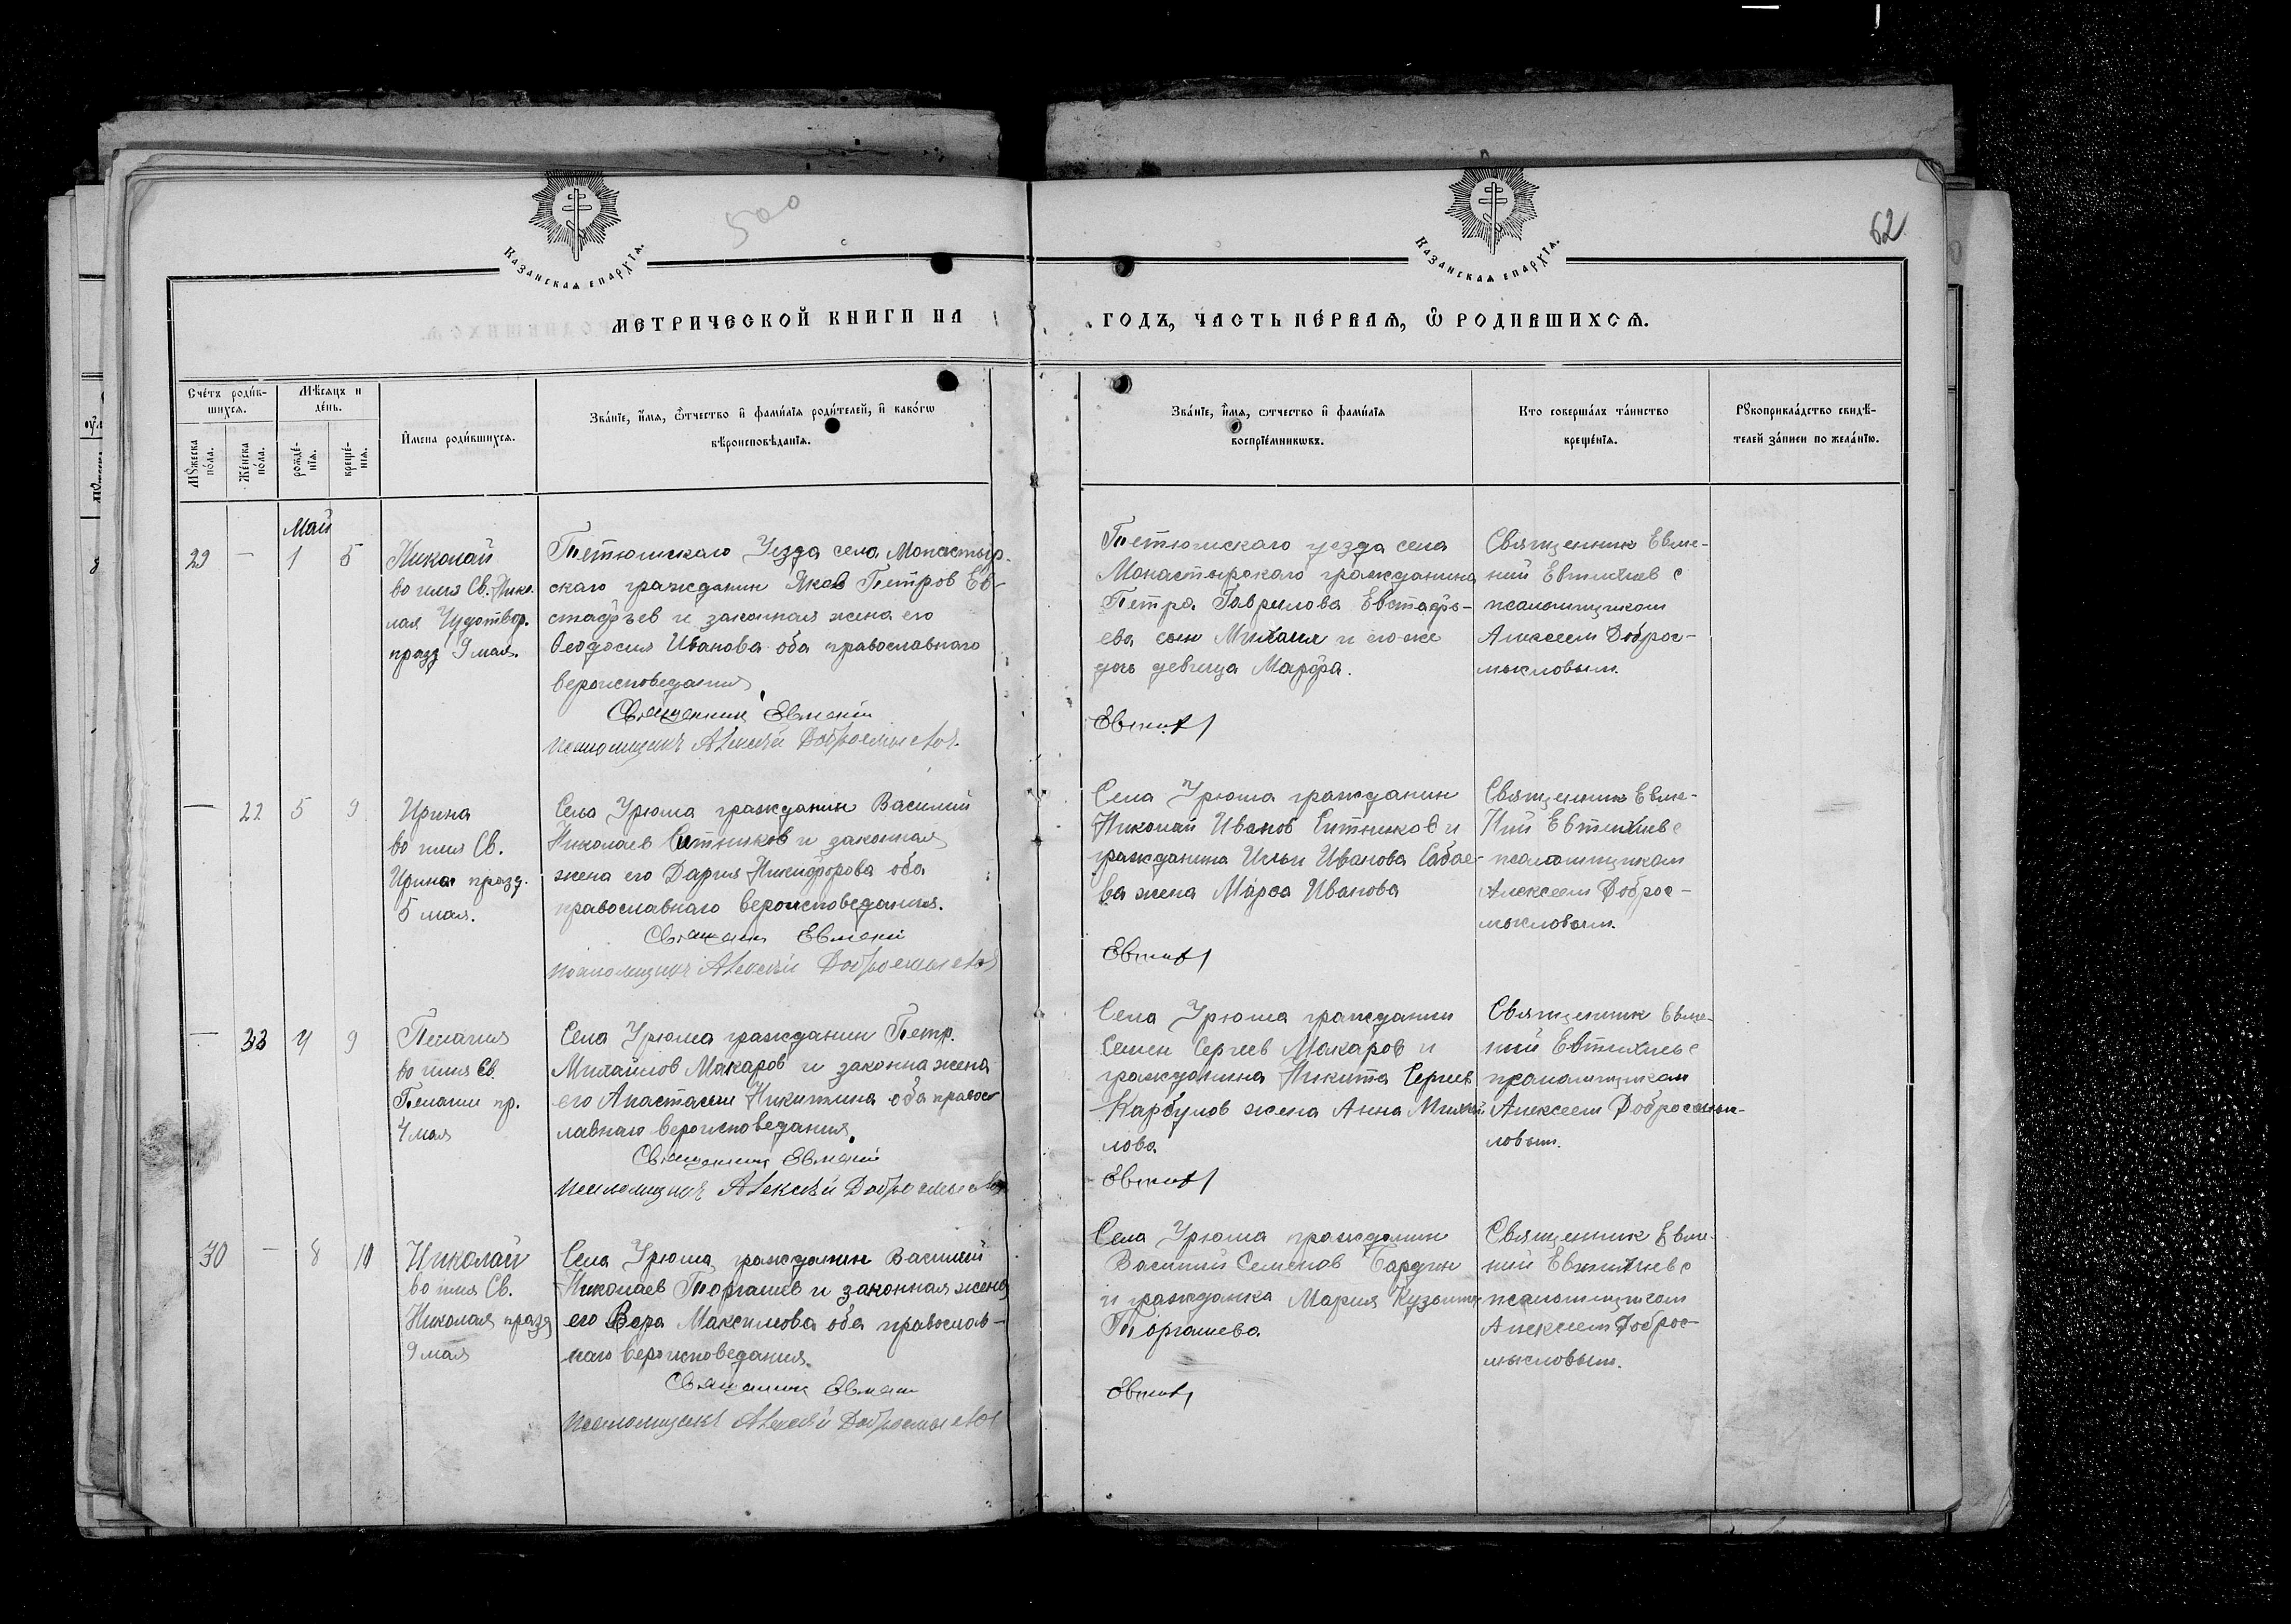 500
62
Казанская епархїѧ.
Казанская епархїѧ.
МЕТРИЧЕСКОЙ КНИГИ НА
ГОДЪ, ЧАСТЬ ПЕ́РВАѦ, Ѽ РОДИВШИХСѦ.
Сче́тъ роди́в-
шихсѧ.
Мѣ́сѧцъ и
де́нь.
Мꙋ́жеска
по́ла.
Же́нска
по́ла.
рожде́-
нїѧ.
креще́-
нїѧ.
И҆мена роди́вшихсѧ.
Зва́нїе, и҆́мѧ, ѻ҆́тчество и҆ фами́лїѧ роди́телей, и҆ како́гѡ
вѣроисповѣ́данїѧ.
Зва́нїе, и҆́мѧ, ѻ҆тчество и҆ фами́лїѧ
воспрїе́мникѡвъ.
Кто соверша́лъ та́инство
креще́нїѧ.
Рꙋкоприкла́дство свидѣ́-
телей за́писи по жела́нїю.
Май
29 — 1 5
Николай
во имя Св. Нико-
лая Чудотвор.
празд 9 мая.
Тетюшскаго Уезда села Монастыр-
скаго гражданин Яков Петров Ев-
стафьев и законная жена его
Феодосия Иванова оба православнаго
вероисповедания.
Священник Евмений
псаломщикъ Алексѣй Добросмыслов.
Тетюшскаго уезда села
Монастырскаго гражданина
Петра Гаврилова Евстафь-
ева сын Михаил и его же
дочь девица Марфа.
Евтих
Священник Евме-
ний Евтихиев с
псаломщиком
Алексеем Доброс-
мысловым.
— 22 5 9
Ирина
во имя Св.
Ирины празд.
5 мая.
Села Урюма гражданин Василий
Николаев Ситников и законная
жена его Дария Никифорова оба
православнаго вероисповедания.
Священник Евмений
псаломщикъ Алексѣй Добросмыслов
Села Урюма гражданин
Николай Иванов Ситников и
гражданина Ильи Иванова Сабае-
ва жена Марфа Иванова
Евтих
Священник Евме-
ний Евтихиев с
псаломщиком
Алексеем Доброс-
мысловым.
— 23 4 9
Пелагия
во имя Св.
Пелагии пр.
4 мая
Села Урюма гражданин Петр.
Михайлов Макаров и законна жена
его Анастасия Никитина оба правос
лавнаго вероисповедания.
Священник Евмений
псаломщикъ Алексѣй Добросмыслов
Села Урюма гражданин
Семен Сергеев Макаров и
гражданина Никита Сергеев
Карбулов жена Анна Михай-
лова
Евтих
Священник Евме-
ний Евтихиев с
псаломщиком
Алексеем Добросмыс-
ловым.
30 — 8 10
Николай
во имя Св.
Николая празд
9 мая
Села Урюма гражданин Василий
Николаев Торгашев и законная жена
его Вера Максимова оба православ-
наго вероисповедания.
Священник Евмени
псаломщикъ Алексѣй Добросмыслов
Села Урюма гражданин
Василий Семенов Бардин
и гражданка Мария Кузьмина
Торгашева
Евтих
Священник Евме-
ний Евтихиев с
псаломщиком
Алексеем Доброс-
мысловым.